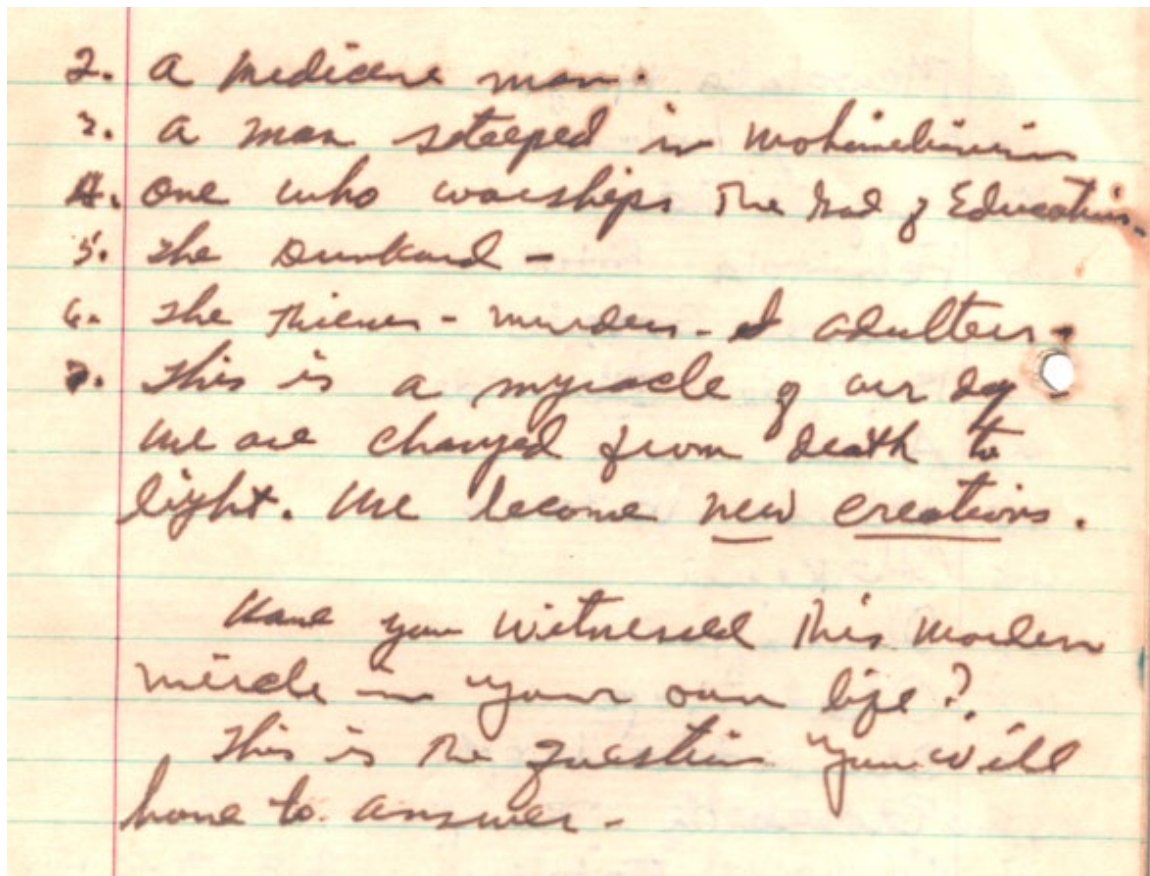 2. A medicine man.
3. A man steeped in
4. One who worships the God of Education.
5. The Drunkard -
6. The Thieves - murders - & adulters -
7. This is a myracle of our day -
We are changed from death to
light. We become new creations.
Have you witnessed this modern
miracle in your own life?
This is the question you will
have to answer -